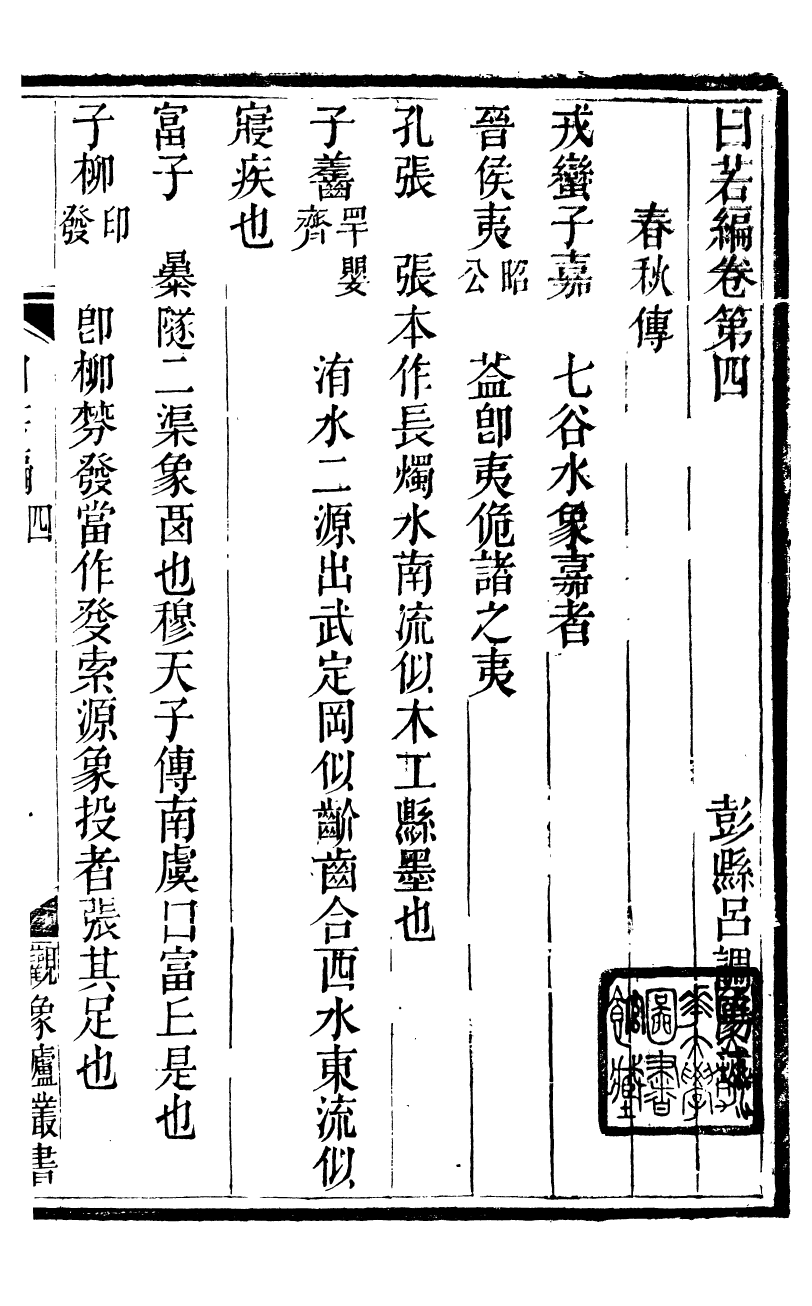 曰若編卷第四
彭縣呂調陽
春秋傳
戎蠻子嘉　七谷水象嘉者
晉侯夷昭公　葢卽夷佹諸之夷
孔張　張本作長燭水南流似木工縣墨也
子齹罕嬰齊　洧水二源出武定岡似齘齒合西水東流似
寢疾也
富子　㬥隧二渠象畐也穆天子傳南虞口富丘是也
子柳印發　卽柳棼發當作癹索源象投者張其足也
四
觀象廬叢書